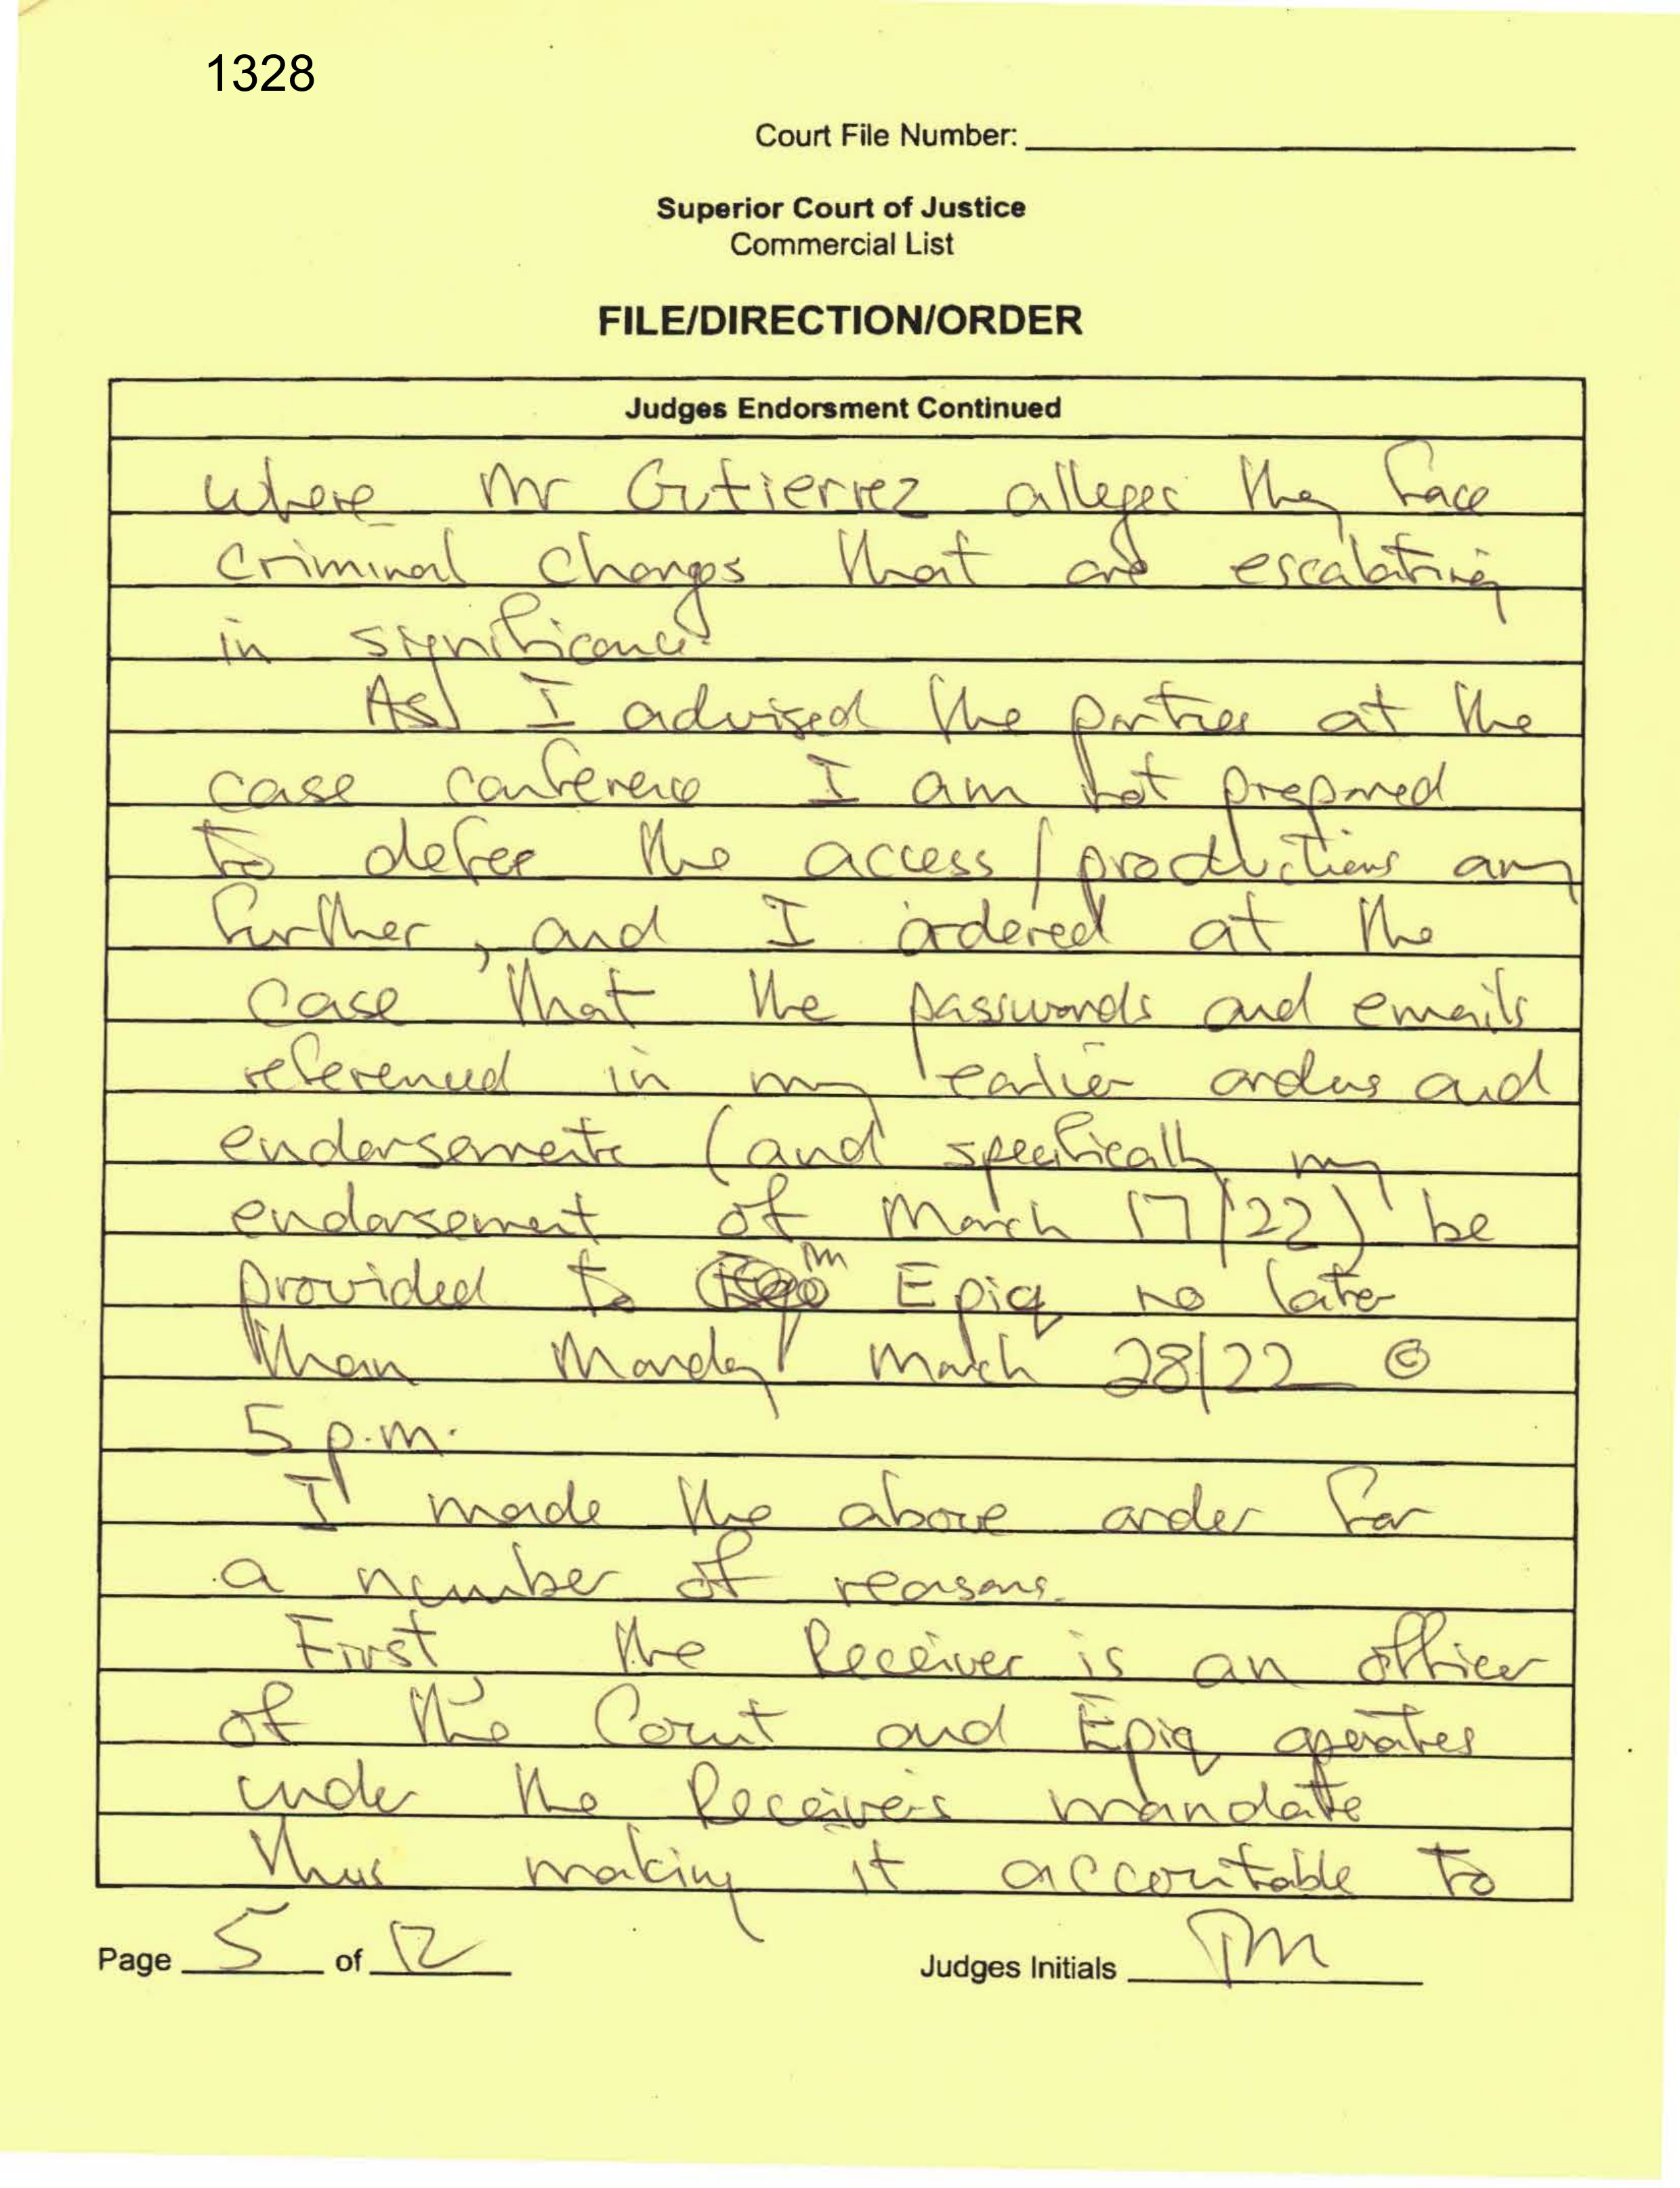 1328
Court File Number:
Superior Court of Justice
Commercial List
FILE/DIRECTION/ORDER
Judges Endorsment Continued
where Mr Gutierrez alleges they face
criminal charges that are escalating
in significance.
As I advised the parties at the
case conference I am not prepared
to defer the access/productions any
further, and I ordered at the
case that the passwords and emails
referenced in my earlier orders and
endorsements (and specifically my
endorsement of March 17/22) be
provided to Epiq no later
than Monday March 28/22 @
5 p.m.
I made the above order for
a number of reasons.
First, the Receiver is an officer
of the Court and Epiq operates
under the Receiver's mandate
thus making it accountable to
Page 5 of 12
Judges Initials TM